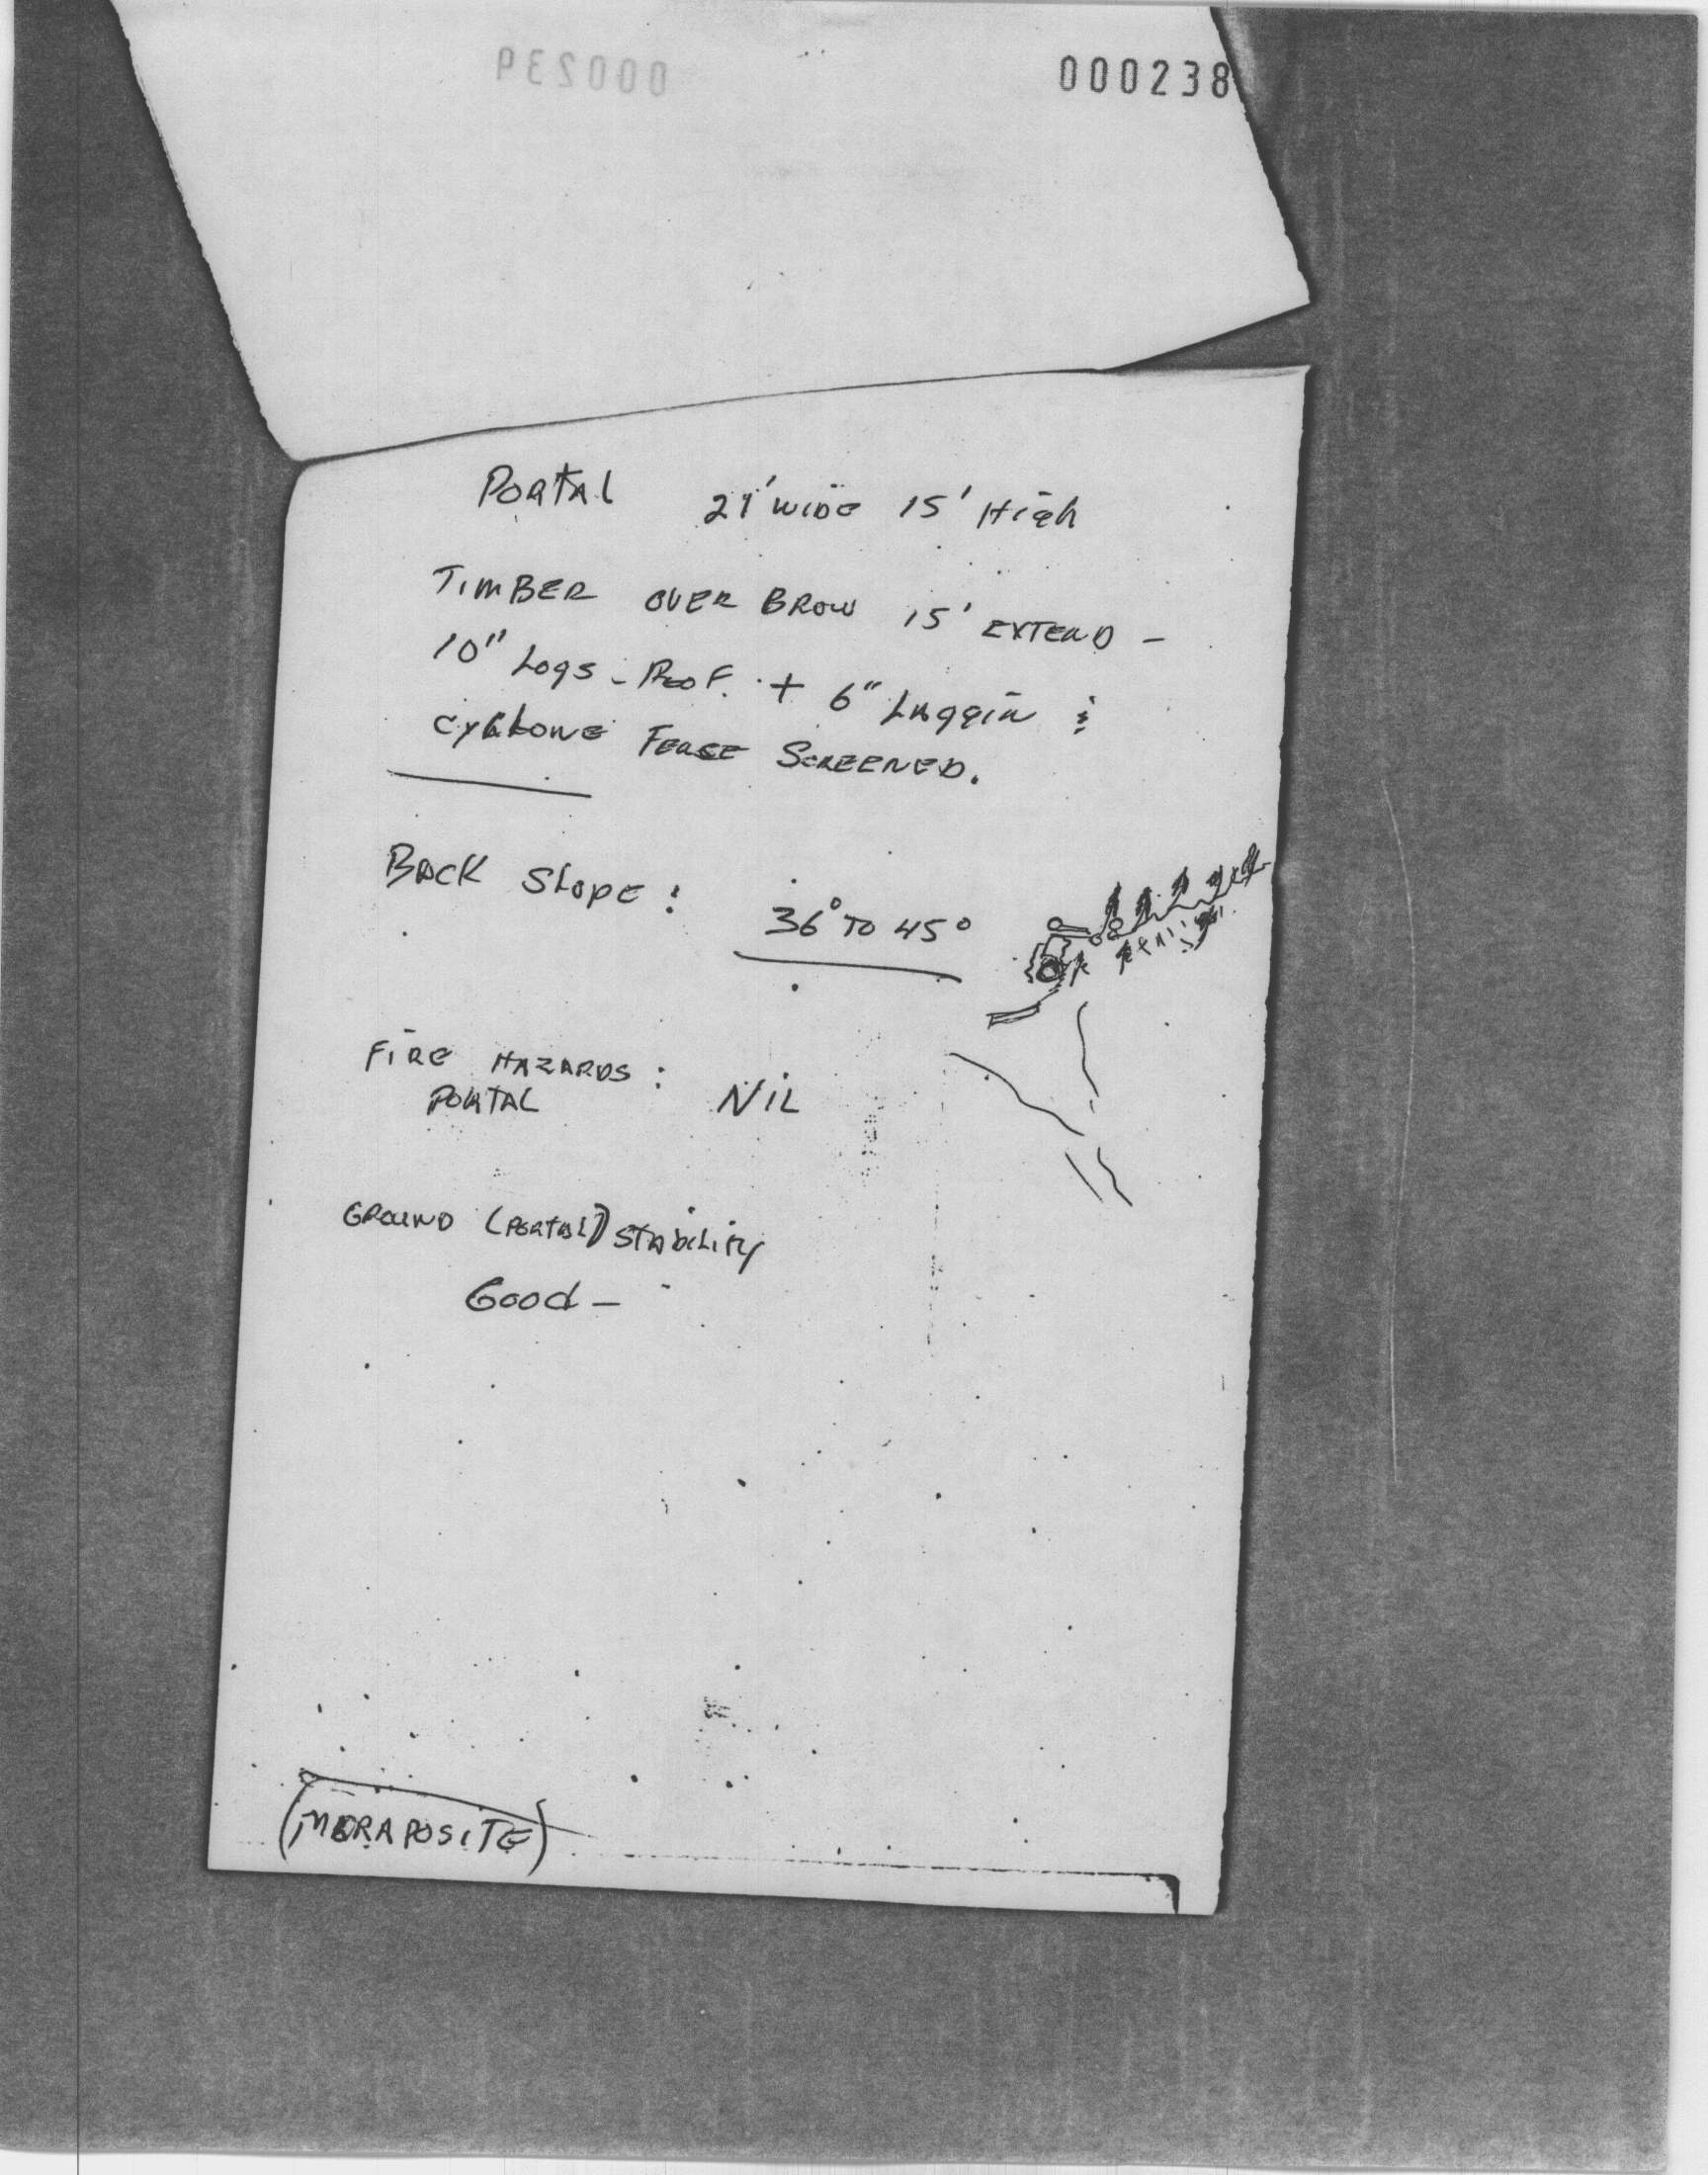 000238
PORTAL 21' WIDE 15' High
TIMBER OVER BROW 15' EXTEND -
10" Logs - Roof. + 6" Laggin &
CYKLONE FENSE SCREENED.
BACK SLOPE : 36° TO 45°
FIRE HAZARDS :
PORTAL NIL
GROUND (PORTAL) STABILITY
Good -
(MORAPOSITE)